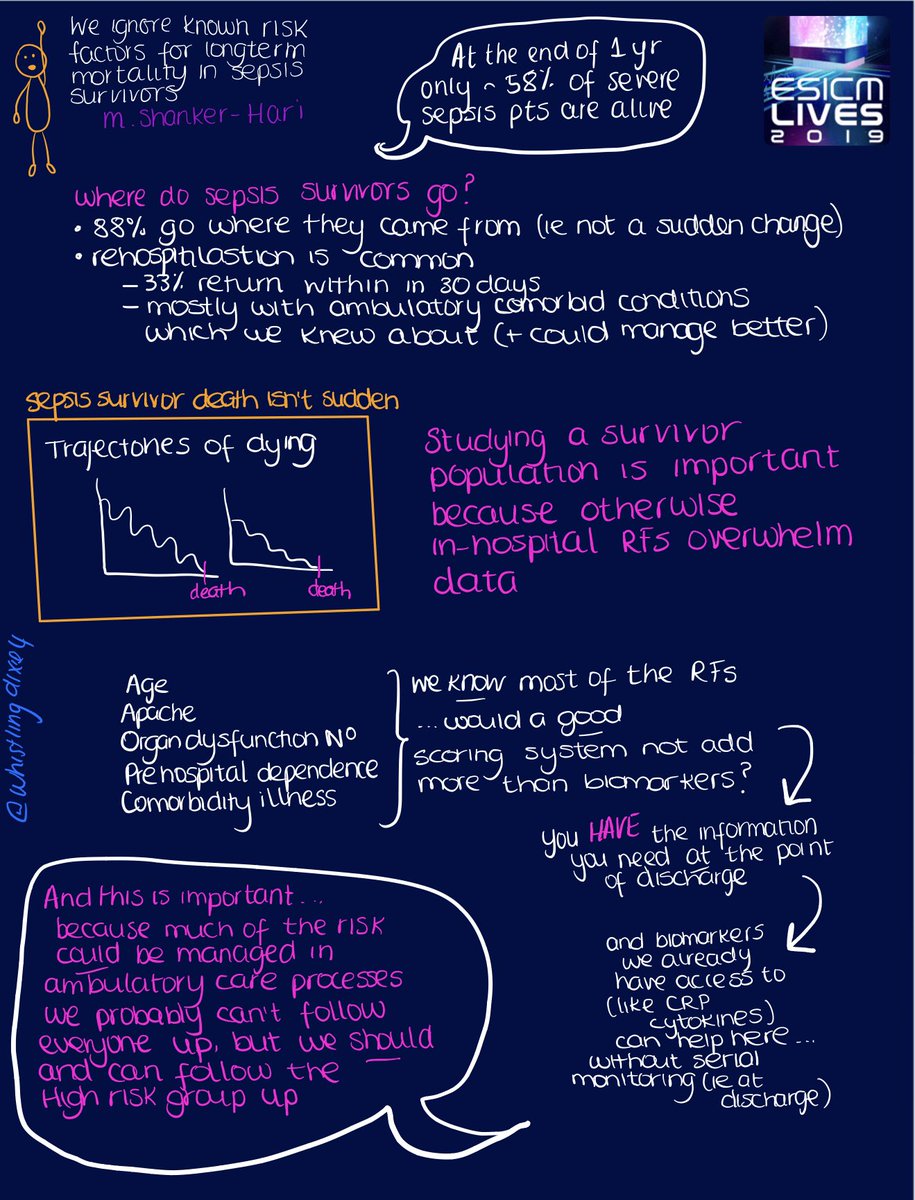 We ignore known risk
factors for longterm
mortality in sepsis
survivors
M. Shanker-Hari
At the end of 1 yr
only ~ 58% of severe
sepsis pts are alive
ESICM
LIVES
2019
where do sepsis survivors go?
• 88% go where they came from (ie not a sudden change)
• rehospitilastion is common
– 33% return within in 30 days
– mostly with ambulatory comorbid conditions
which we knew about (+ could manage better)
sepsis survivor death isn't sudden
Trajectories of dying
death
death
Studying a survivor
population is important
because otherwise
in-hospital RFs overwhelm
data
@whistlingdixie4
Age
Apache
Organ dysfunction No
Pre hospital dependence
Comorbidity illness
we know most of the RFs
... would a good
scoring system not add
more than biomarkers?
you HAVE the information
you need at the point
of discharge
and biomarkers
we already
have access to
(like CRP
cytokines)
can help here ...
without serial
monitoring (ie at
discharge)
And this is important ...
because much of the risk
could be managed in
ambulatory care processes
we probably can't follow
everyone up, but we should
and can follow the
High risk group up